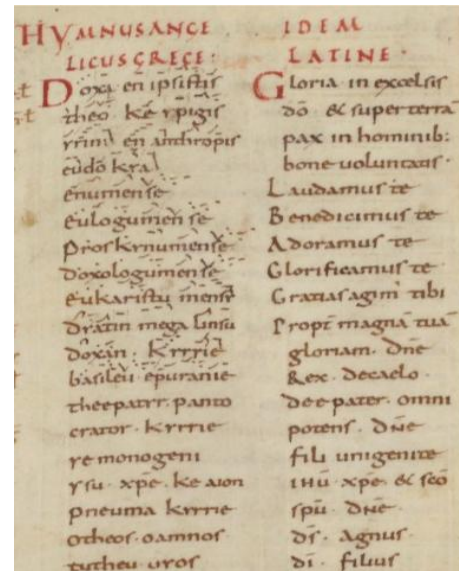 HYMNUS ANGE
LICUS GRECE·
Doxa en ipsistis
theo· ke ypigis
yrini en anthropis
eudo kya
enumen se
eulogumen se
proskynumen se
doxologumen se
eukaristu men se
dya tin mega lin su
doxan· kyrrie
basileu epuranie
theepatyr· panto
crator· kyrrie
ye monogeni
ysu· xpe· ke aion
pneuma kyrrie
otheos· oamnos
tutheu· yros
IDEM
LATINE·
Gloria in excelsis
dō & super terrā
pax in hominib:
bone voluntatis·
Laudamus te
Benedicimus te
Adoramus te
Glorificamus te
Gratias agim̄ tibi
Propt magnā tuā
gloriam· dn̄e
Rex· decaelo·
deepater· omni
potens· dn̄e
fili unigenite
ihū xpe· & sc̄o
spū dn̄e·
dr̄s· Agnus·
dī· filius